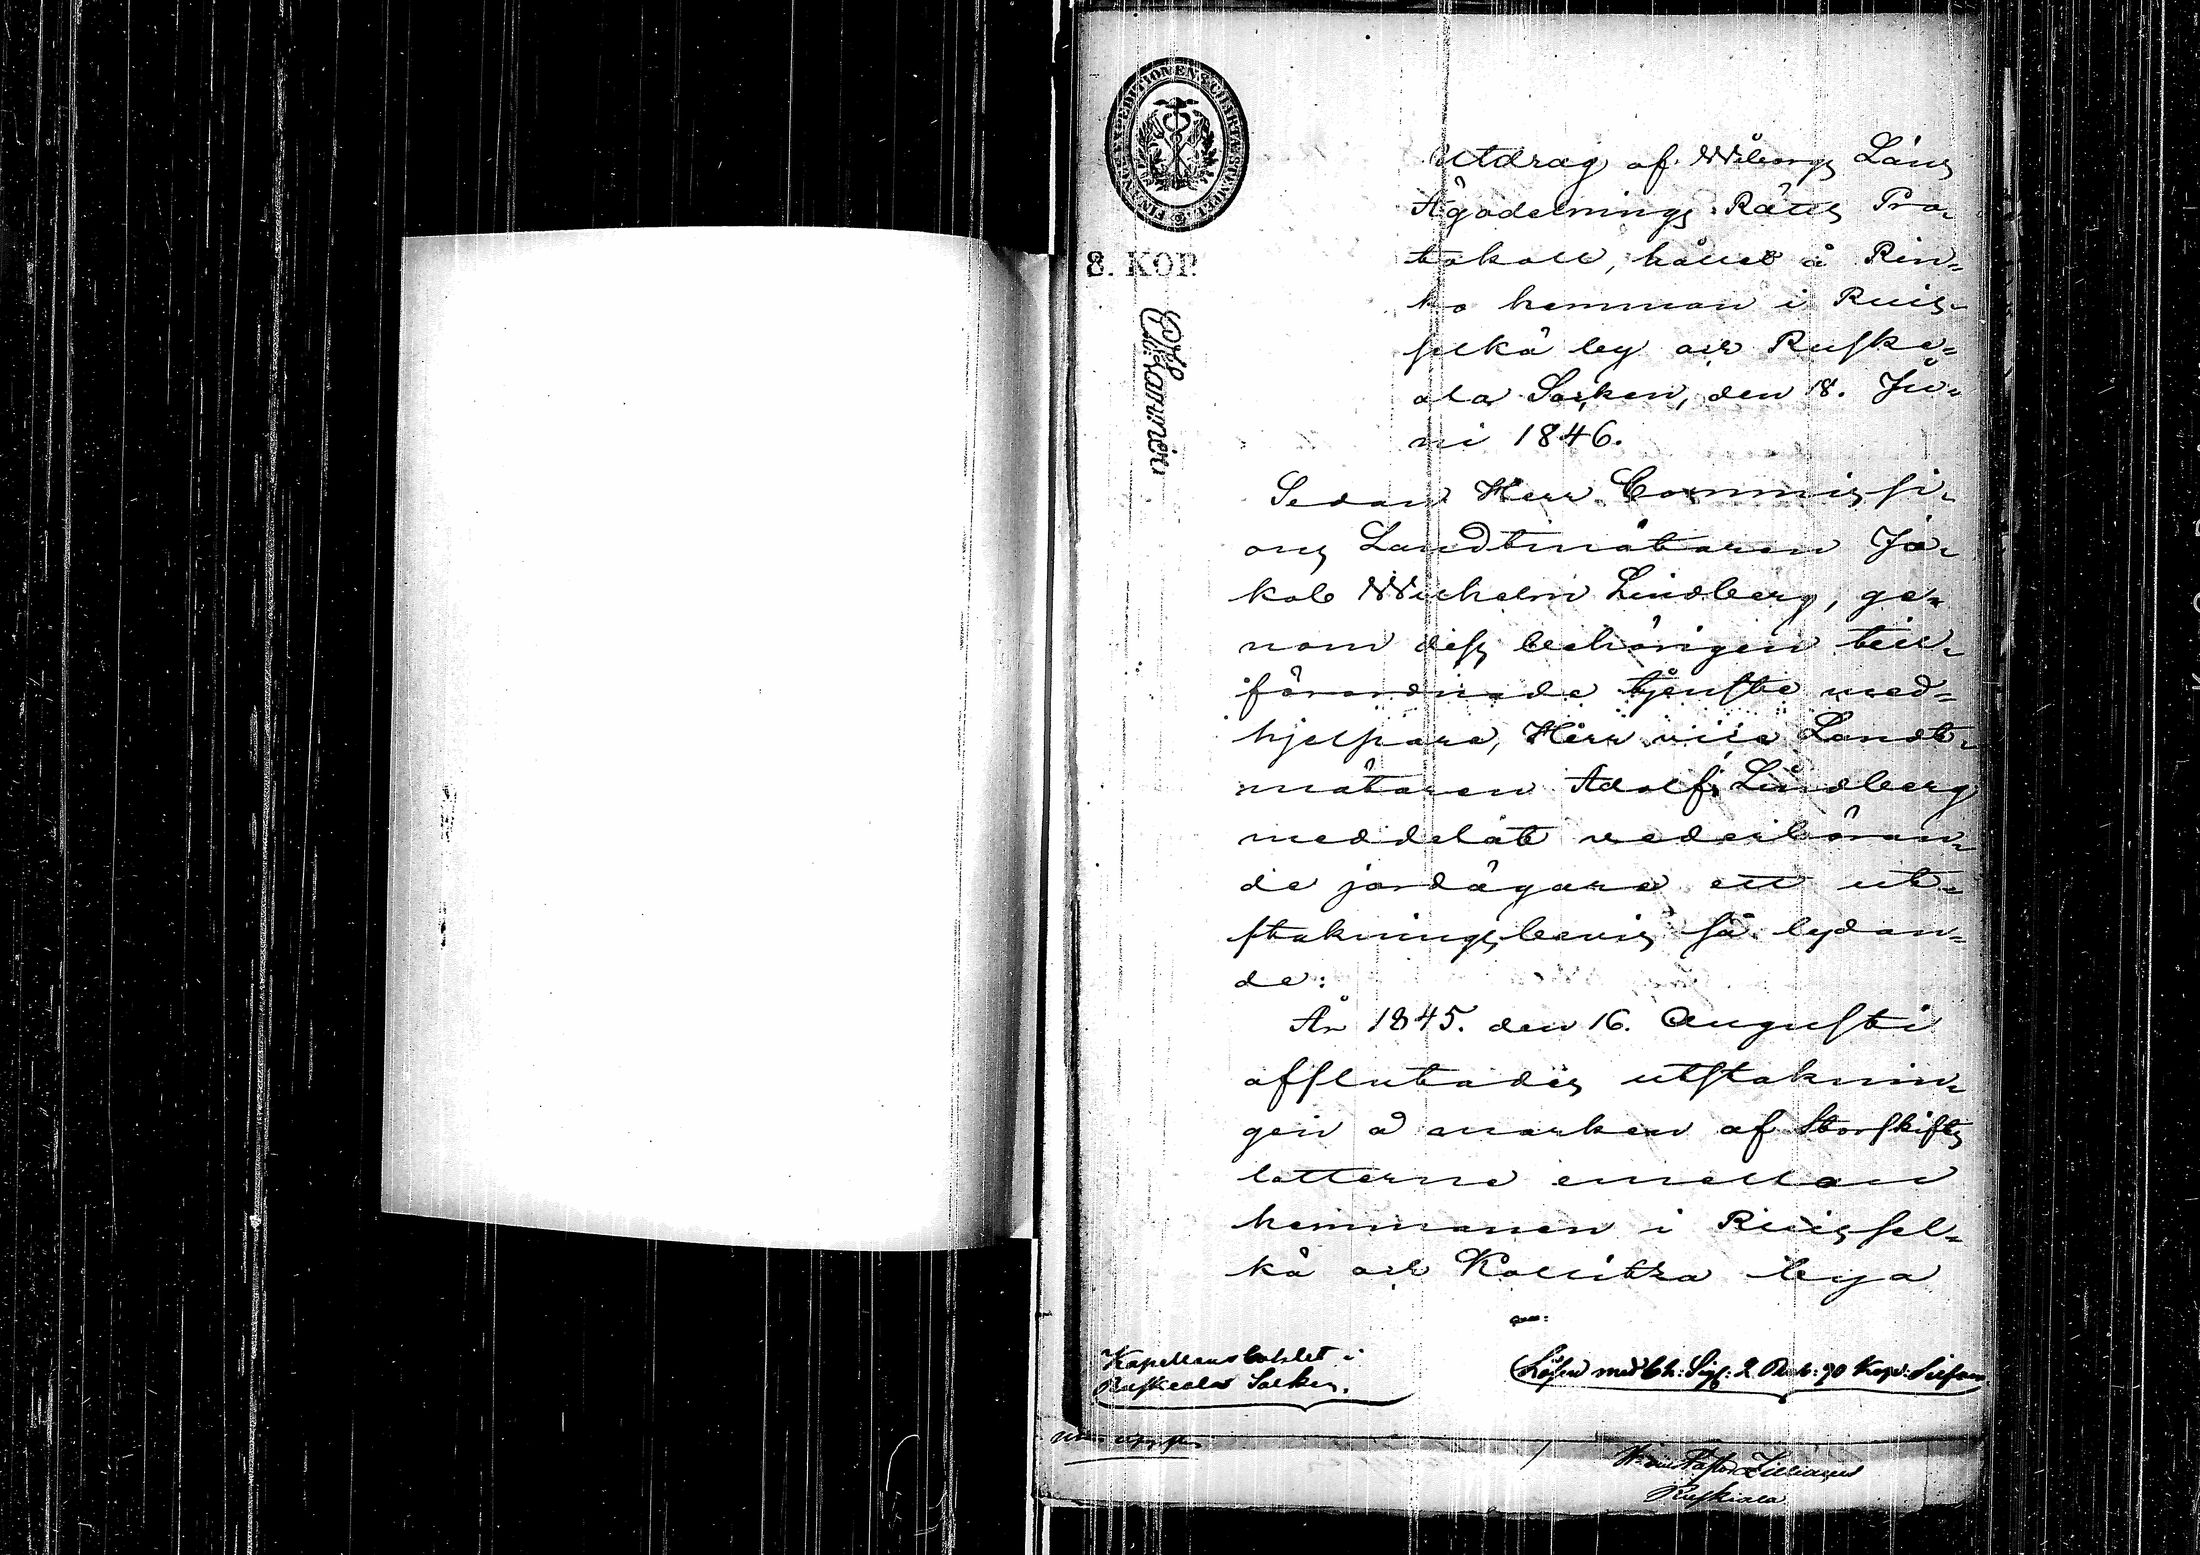 FINANCE EXPEDITIONENS CHARTÆ STÄMPEL
8. KOP.
Utdrag af Wiborgs Läns
Ägodelnings Rätts Pro-
tokoll, hållet å Rin-
ko hemman i Ruis-
selkä by och Ruske-
ala Socken, den 18. Ju-
ni 1846.
Sedan Herr Commissi-
ons Landtmätaren Ja-
kob Wilhelm Lindberg, ge-
nom dess behörigen till-
förordnade tjenste med-
hjelpare, Herr vice Landt-
mätaren Adolf Lindberg
meddelat vederböran-
de jordägare ett ut-
stakningsbevis så lydan-
de:
År 1845. den 16. Augusti
afslutades utstaknin-
gen å marken af Storskifts
lotterne emellan
hemmanen i Ruissel-
kä och Kalitka bya
Kapellansbohlet i
Ruskeala Socken.
Lösen med Ch: Sig: 2 Rub: 70 Kop: Silfver
Ruskiala